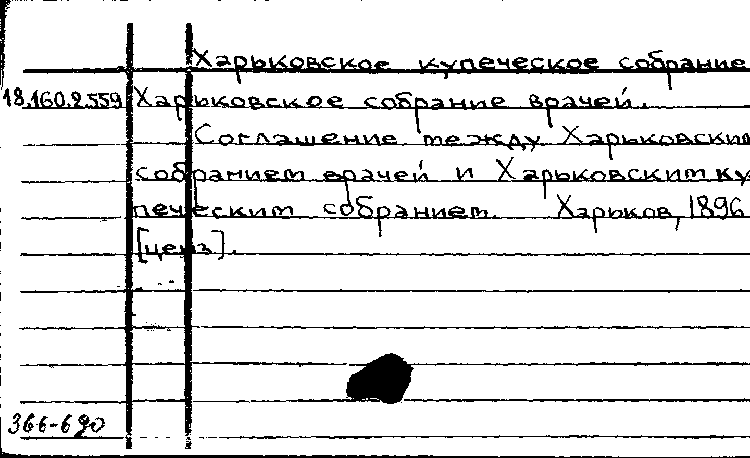 Харьковское купеческое собрание
18.160.2.559 Харьковское собрание врачей.
Соглашение между Харьковским
собранием врачей и Харьковским ку
печеским собранием. Харьков, 1896
[ценз].
366-690